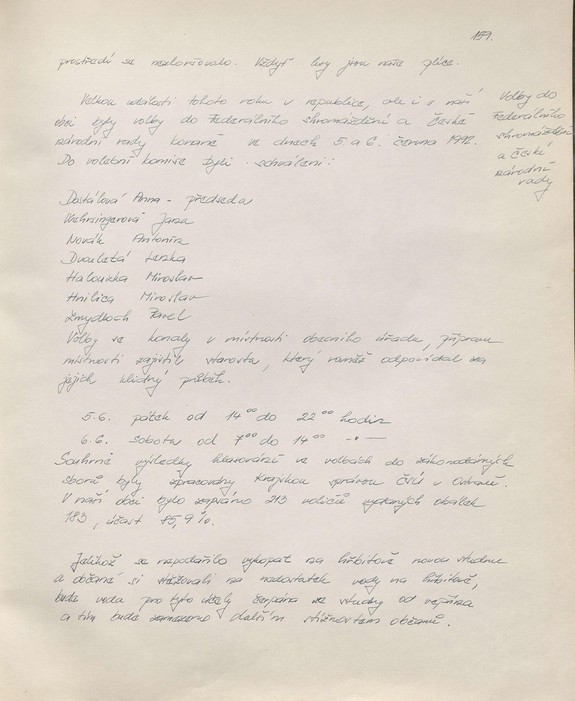 159.
prostředí se nezhoršovalo. Vždyť lesy jsou naše plíce.
Velkou událostí tohoto roku v republice, ale i v naší
obci byly volby do Federálního shromáždění a České
národní rady konané ve dnech 5. a 6. června 1992.
Do volební komise byli schváleni:
Volby do
Federálního
shromáždění
a České
národní
rady
Dostálová Anna - předseda
Wehsingerová Jana
Novák Antonín
Dvouletá Lenka
Halouzka Miroslav
Hnilica Miroslav
Pavel
Volby se konaly v místnosti obecního úřadu, přípravu
místnosti zajistil starosta, který rovněž odpovídal za
jejich klidný průběh.
5.6. pátek od 14⁰⁰ do 22⁰⁰ hodin
6.6. sobota od 7⁰⁰ do 14⁰⁰ -"-
Souhrnné výsledky hlasování ve volbách do zákonodárných
sborů byly zpracovány Krajskou správou ČSÚ v Ostravě.
V naší obci bylo zapsáno 213 voličů, vydaných obálek
183, účast 85,9 %.
Jelikož se nepodařilo vykopat na hřbitově novou studnu
a občané si stěžovali na nedostatek vody na hřbitově,
bude voda pro tyto účely čerpána ze studny od vepřína
a tím bude zamezeno dalším stížnostem občanů.